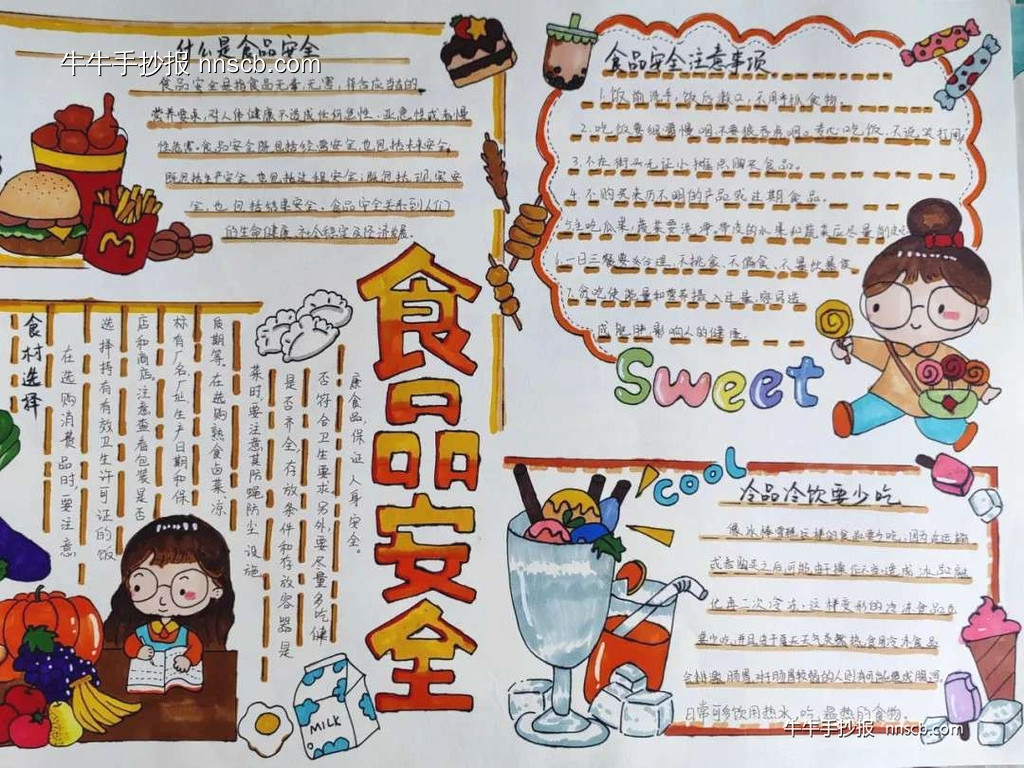 牛牛手抄报 hnscb.com
什么是食品安全
食品安全是指食品无毒、无害，符合应当有的
营养要求，对人体健康不造成任何急性、亚急性或者慢
性危害。食品安全既包括
既包括生产安全，也包括过程安全；既包括现实安
全，也包括结果安全。食品安全关系到人们
的生命健康
食品安全注意事项
1.饭前洗手，饭后漱口，不用手抓食物。
2.吃饭要细嚼慢咽
吃饭，不说笑打闹
3.不在街头无证小摊点购买食品。
4.不购买来历不明的产品或过期食品。
5.生吃瓜果，蔬菜要洗净，带皮的水果和蔬菜应尽量削皮吃
6.一日三餐要
不挑食、不偏食、不暴饮暴食
7.贪吃使能量和营养摄入过量，容易造
成肥胖，影响人的健康。
Sweet
食品安全
食材选择
在选购消费品时，要注意
选择持有有效卫生许可证的饭
店和商店。注意查看包装是否
标有厂名、厂址、生产日期和保
质期等。在选购熟食卤菜、凉
菜时，要注意其防蝇防尘设施
是否齐全，存放条件和存放容器是
否符合卫生要求。另外，要尽量多吃健
康食品，保证人身安全。
MILK
cool
冷品冷饮要少吃
像冰棒雪糕这样的食品要少吃，因为在运输
或者购买之后可能由于操作不当造成冰型融
化再二次冷冻，这样变形的冷冻食品也
要少吃，并且由于夏天天气炎热，食用冷冻食品
会刺激肠胃，对于肠胃较弱的人则有可能造成腹泻。
日常可多饮用热水，吃一些热的食物。
牛牛手抄报 nnscb.com